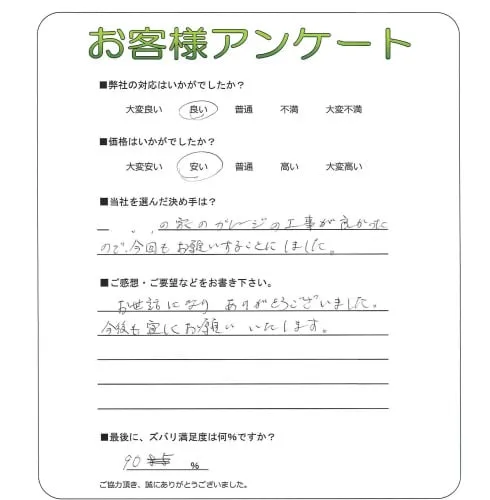 お客様アンケート
■弊社の対応はいかがでしたか？
大変良い 良い 普通 不満 大変不満
■価格はいかがでしたか？
大変安い 安い 普通 高い 大変高い
■当社を選んだ決め手は？
の家のガレージの工事が良かった
ので、今回もお願いすることにしました。
■ご感想・ご要望などをお書き下さい。
お世話になり ありがとうございました。
今後も宜しくお願い いたします。
■最後に、ズバリ満足度は何％ですか？
90 %
ご協力頂き、誠にありがとうございました。